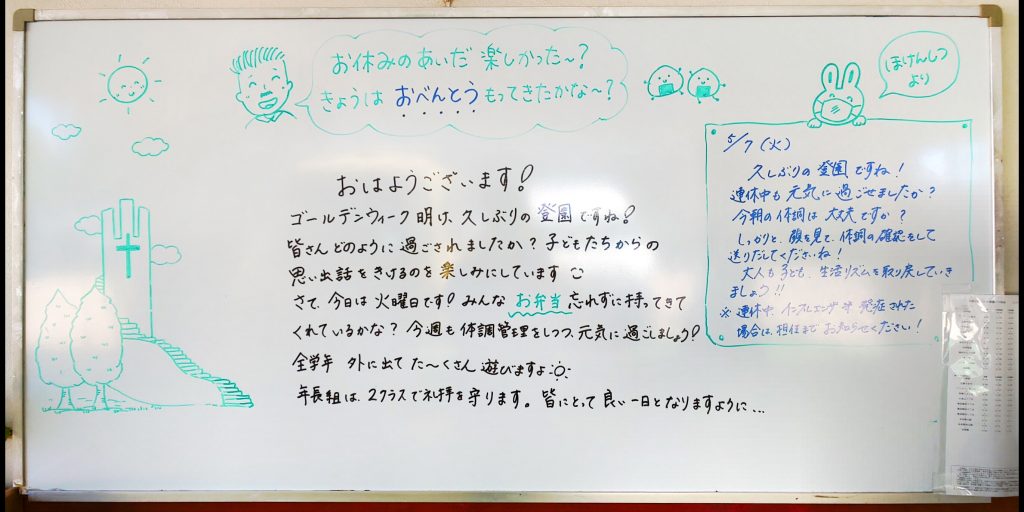 お休みのあいだ 楽しかった〜?
きょうは おべんとう もってきたかな〜?
ほけんしつ
より
おはようございます!
ゴールデンウィーク 明け、久しぶりの 登園ですね!
皆さんどのように 過ごされましたか? 子どもたちからの
思い出話をきけるのを 楽しみにしています
さて、今日は 火曜日です! みんな お弁当 忘れずに持ってきて
くれているかな? 今週も 体調管理をしつつ、元気に過ごしましょう!
全学年 外に出て た〜くさん 遊びますよ
年長組は、2クラスで礼拝を守ります。皆にとって 良い一日となりますように...
5/7 (火)
久しぶりの登園ですね!
連休中も 元気に過ごせましたか?
今朝の体調は 大丈夫ですか?
しっかりと、顔を見て、体調の確認をして
送りだしてくださいね!
大人も子ども、生活リズムを取り戻していき
ましょう!!
※ 連休中、インフルエンザ等 発症された
場合は、担任まで お知らせください!